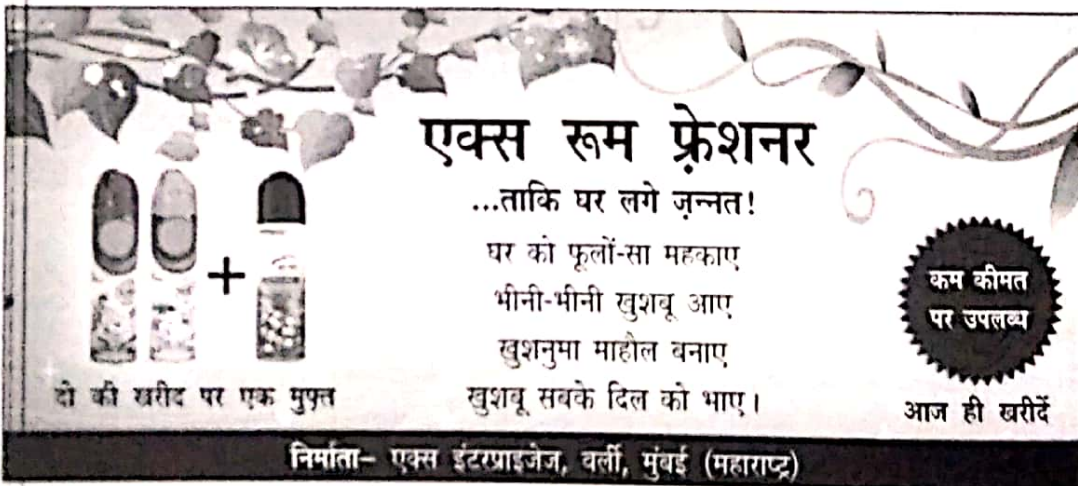 एक्स रूम फ़्रेशनर
...ताकि घर लगे ज़न्नत!
घर को फूलों-सा महकाए
भीनी-भीनी खुशबू आए
खुशनुमा माहौल बनाए
खुशबू सबके दिल को भाए।
+
दो की खरीद पर एक मुफ्त
कम कीमत
पर उपलब्ध
आज ही खरीदें
निर्माता– एक्स इंटरप्राइजेज, वर्ली, मुंबई (महाराष्ट्र)